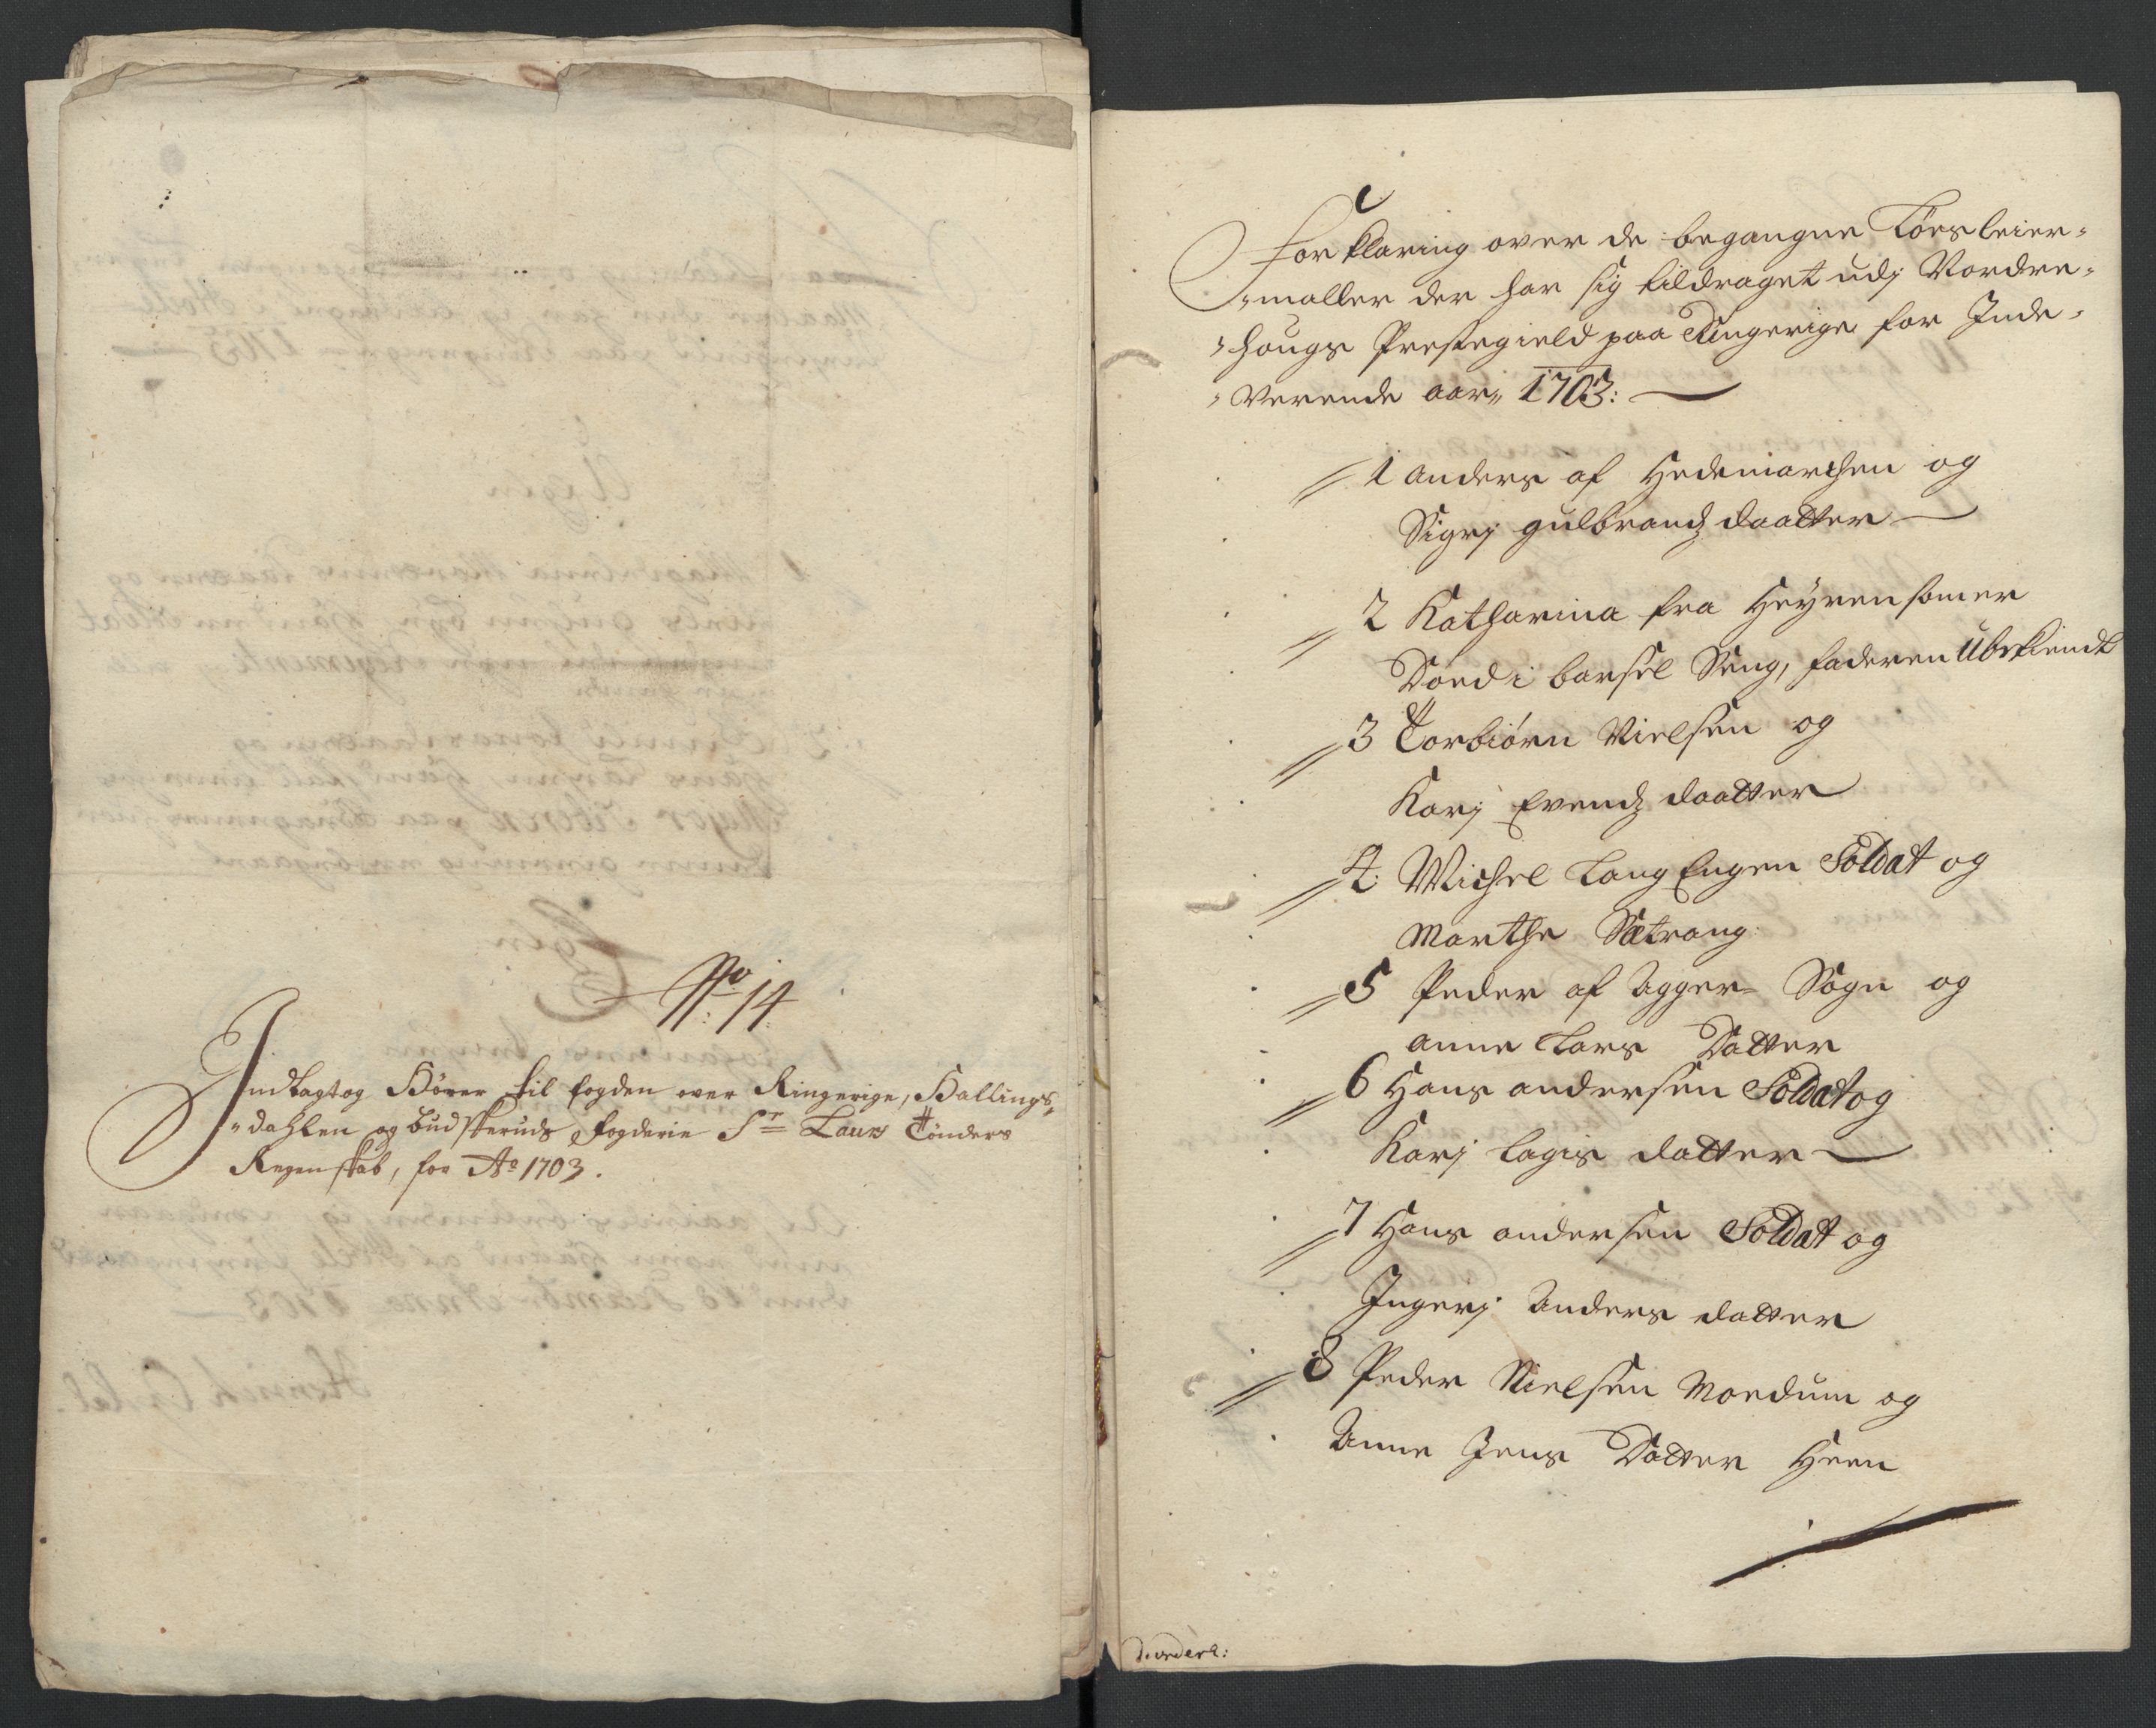 No. 14.
Indlagt og Hörer til fogden over Ringerige, Hallings,
"dahlen og Budskeruds fogderie Sr. Laurs Tönders
Regenskab, for Ao 1703.
Forklaring over de begangne Löes leier-
"maller der har sig tildraget udj Nordre-
"Hougs Prestegield paa Ringerige for Inde-
"Verende aar, 1703:
1 Anders af Hedemarchen og
Sigrj gulbrandz daatter
2 Katharina fra Heyren som er
Död i barsel Seng, faderen Ubekiendt
3 Torbiörn Nielsen og
Karj Evendz daatter
4. Michel Lang Engen Soldat og
Marthe Sætrang.
5 Peder af Agger- Sogn og
anne Lars Datter
6 Hans andersen Soldat og
Karj Lagis datter
7 Hans andersen Soldat og
Ingerj Anders datter
8 Peder Nielsen Moedum og
Anne Jens Datter Heen